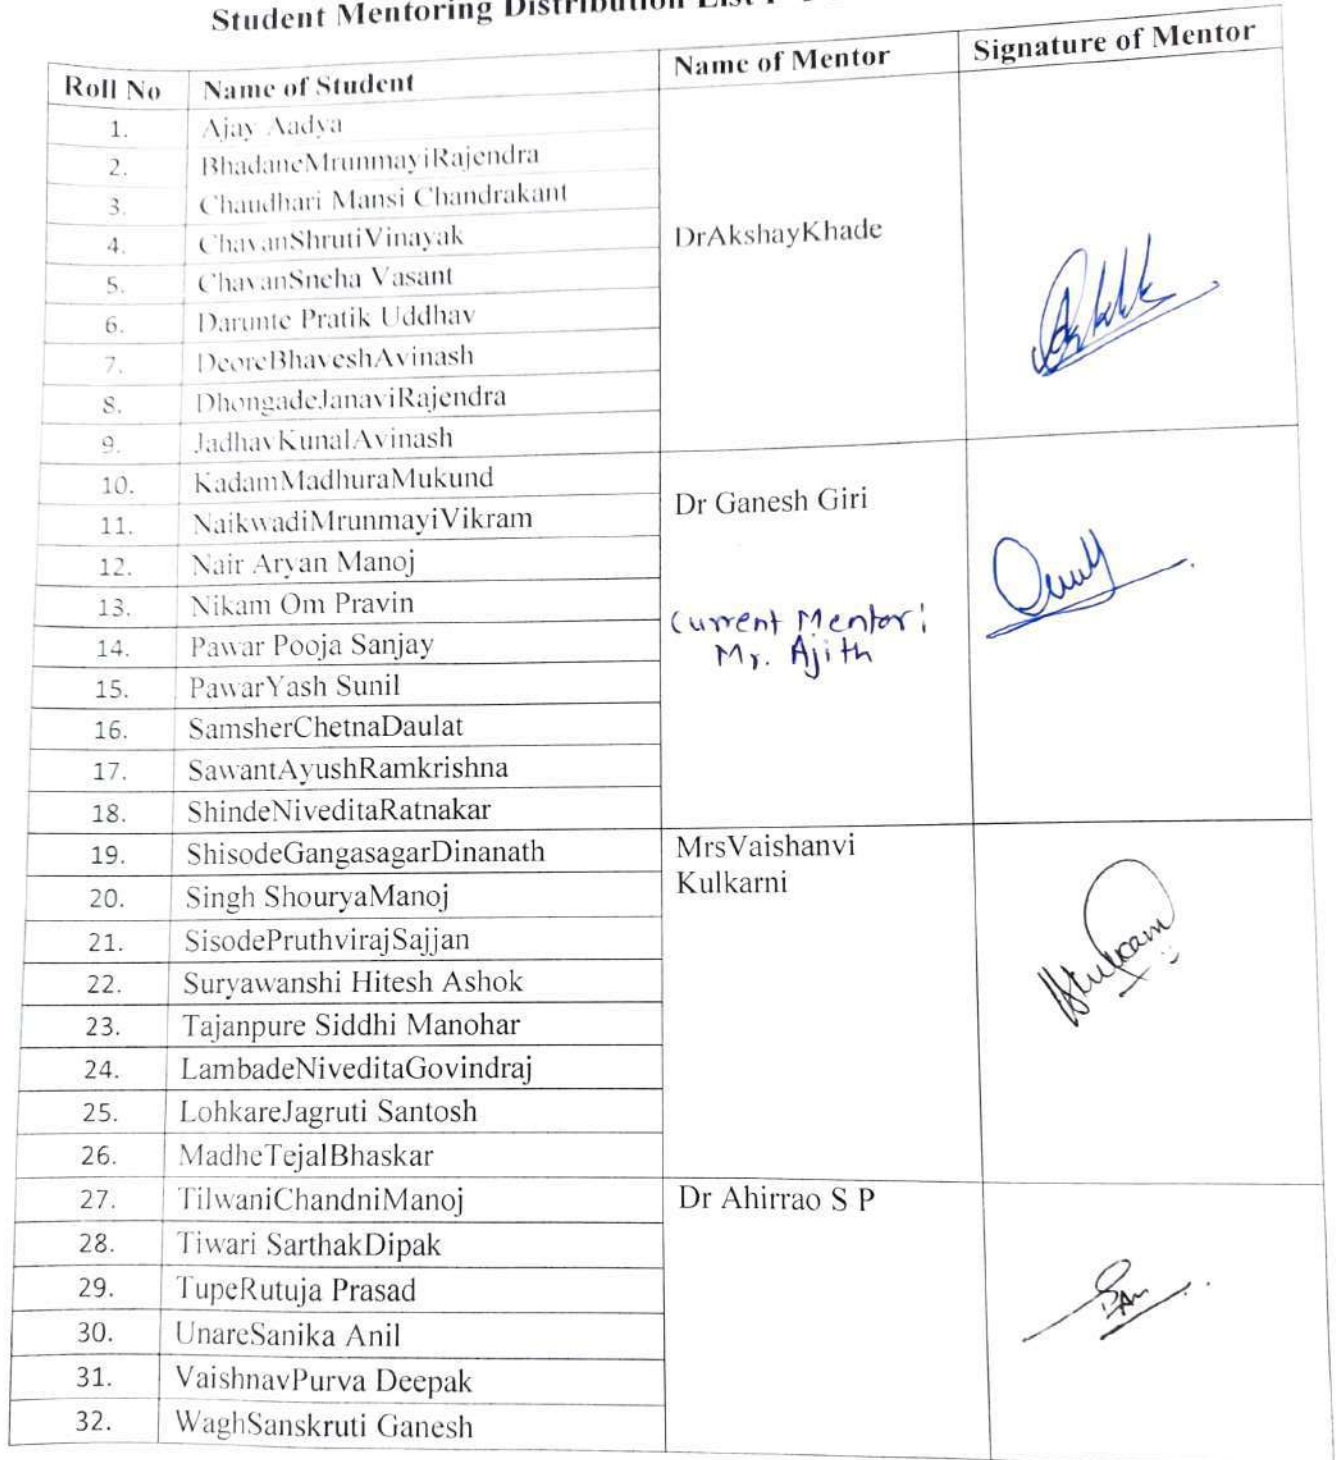 Student Mentoring Distribution List
Roll No Name of Student Name of Mentor Signature of Mentor
1. Ajay Aadya
2. BhadaneMrunmayiRajendra
3. Chaudhari Mansi Chandrakant
4. ChavanShrutiVinayak DrAkshayKhade
5. ChavanSneha Vasant
6. Darunte Pratik Uddhav
7. DeoreBhaveshAvinash
8. DhongadeJanaviRajendra
9. JadhavKunalAvinash
10. KadamMadhuraMukund Dr Ganesh Giri
11. NaikwadiMrunmayiVikram
12. Nair Aryan Manoj
13. Nikam Om Pravin Current Mentor:
14. Pawar Pooja Sanjay Mr. Ajith
15. PawarYash Sunil
16. SamsherChetnaDaulat
17. SawantAyushRamkrishna
18. ShindeNiveditaRatnakar
19. ShisodeGangasagarDinanath MrsVaishanvi
20. Singh ShouryaManoj Kulkarni
21. SisodePruthvirajSajjan
22. Suryawanshi Hitesh Ashok
23. Tajanpure Siddhi Manohar
24. LambadeNiveditaGovindraj
25. LohkareJagruti Santosh
26. MadheTejalBhaskar
27. TilwaniChandniManoj Dr Ahirrao S P
28. Tiwari SarthakDipak
29. TupeRutuja Prasad
30. UnareSanika Anil
31. VaishnavPurva Deepak
32. WaghSanskruti Ganesh